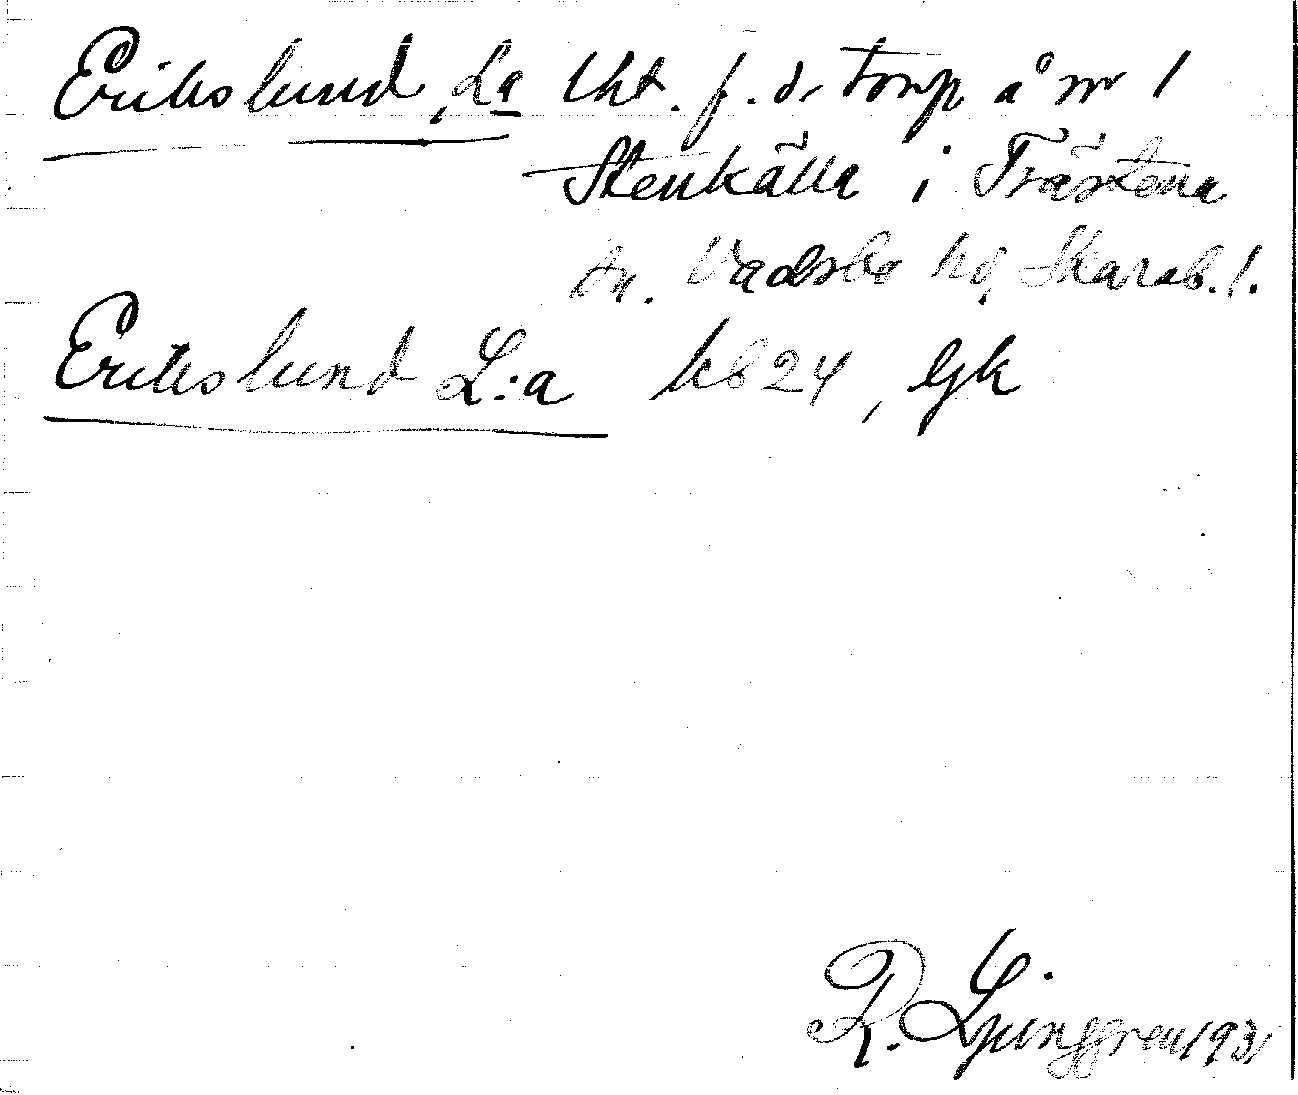 Erikslund, La lht. f. d. torp å nr 1
Stenkälla i Trästena
sn. Vadsbo hd, Skarab. l.
Erikslund L:a kb 24, Gjk
R. Ljunggren 1931